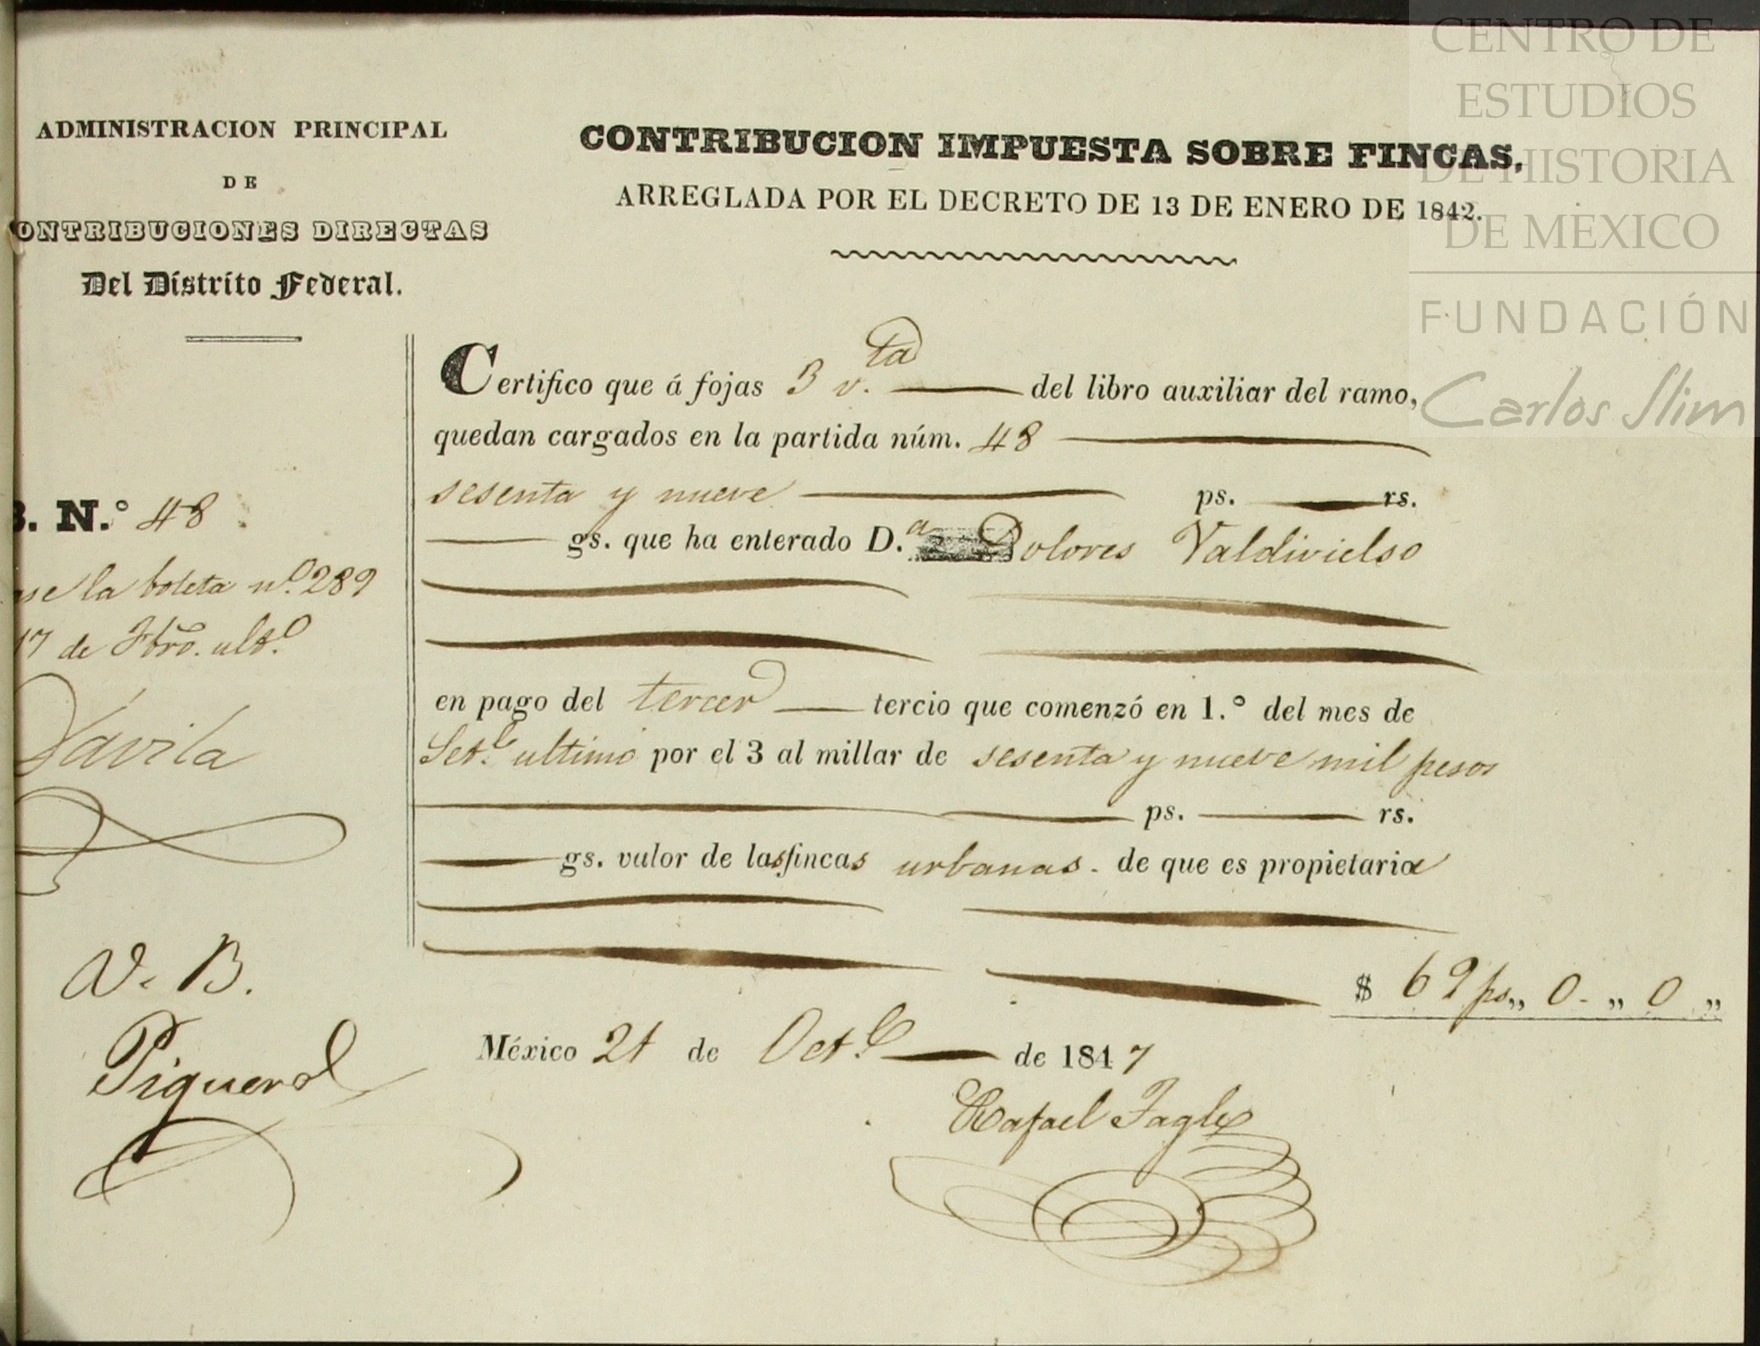 ADMINISTRACION PRINCIPAL
DE
ONTRIBUCIONES DIRECTAS
Del Distrito Federal.
B. N.º 48
se la boleta n.º 289
17 de Fbro. ulto.
Davila
V. B.
Piquero
CONTRIBUCION IMPUESTA SOBRE FINCAS,
ARREGLADA POR EL DECRETO DE 13 DE ENERO DE 1842.
Certifico que á fojas 3 v.ta del libro auxiliar del ramo,
quedan cargados en la partida núm. 48
sesenta y nueve ps. rs.
gs. que ha enterado D.a Dolores Valdivielso
en pago del tercer tercio que comenzó en 1.º del mes de
Set.e ultimo por el 3 al millar de sesenta y nueve mil pesos
ps. rs.
gs. valor de las fincas urbanas. de que es propietaria
$ 69 ps,, 0. ,, 0 ,,
México 21 de Oct.e de 1847
Rafael Tagle
CENTRO DE
ESTUDIOS
DE HISTORIA
DE MÉXICO
FUNDACIÓN
Carlos Slim